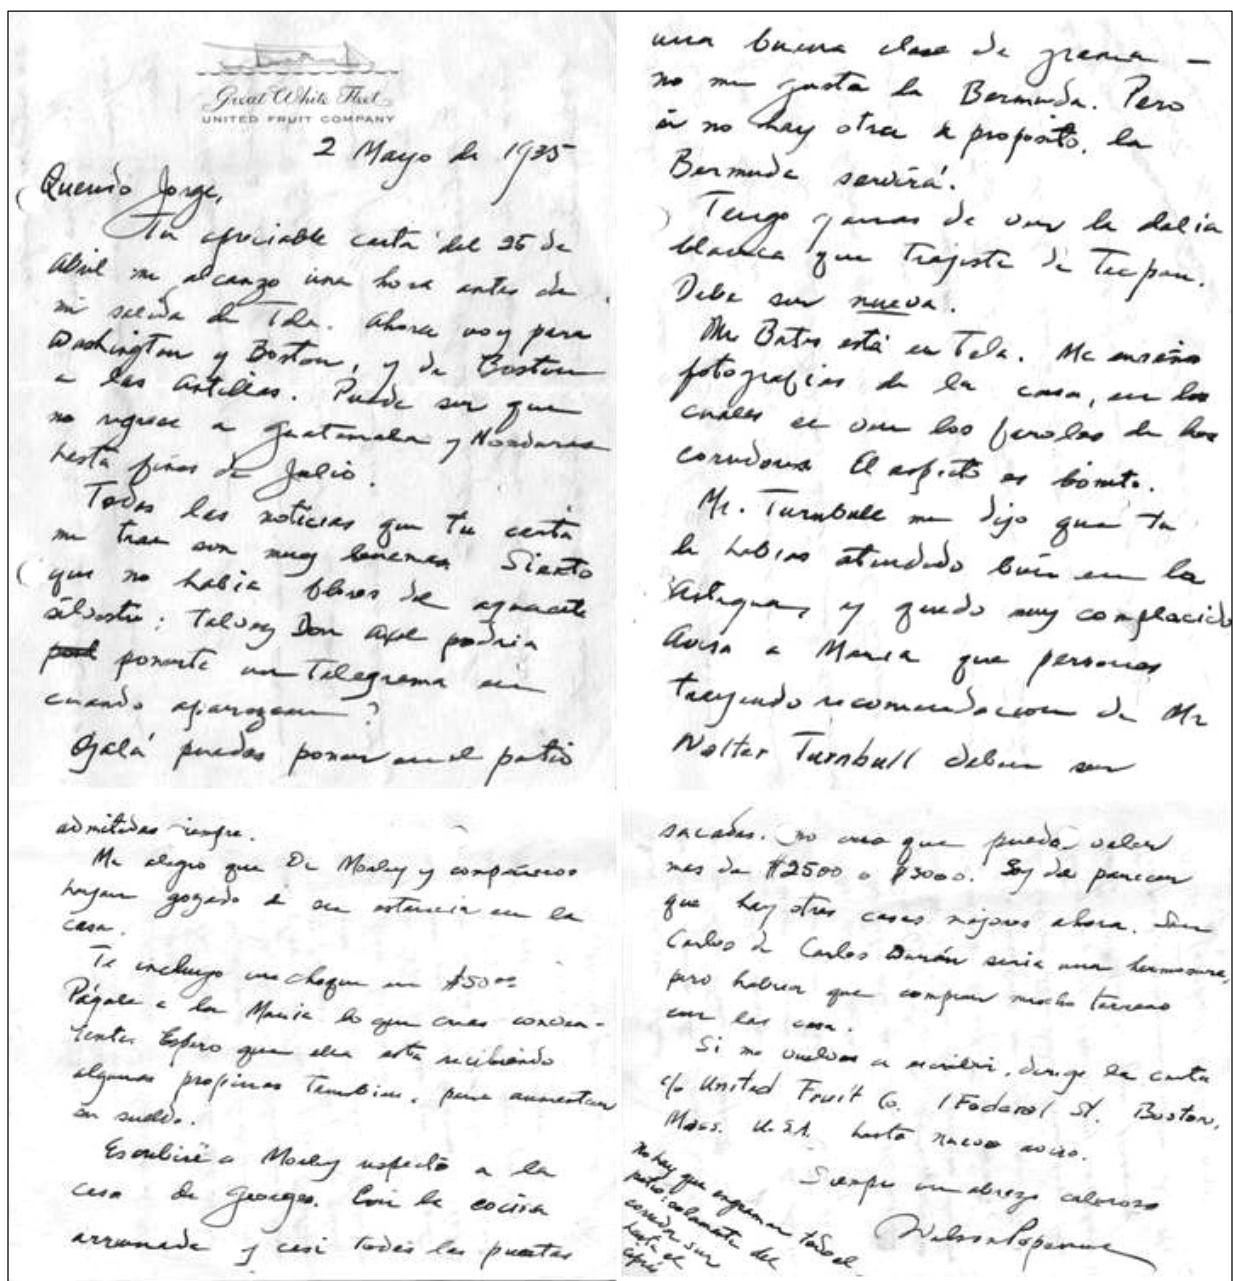 Great White Fleet
UNITED FRUIT COMPANY
2 Mayo de 1935
Querido Jorge,
Tu apreciable carta del 25 de
Abril me alcanzo una hora antes de
mi salida de Tela. Ahora voy para
Washington y Boston, y de Boston
a las Antillas. Puede ser que
no regrese a Guatemala y Honduras
hasta fines de Julio.
Todas las noticias que tu carta
me trae son muy buenas. Siento
que no habia flores de aguacate
silvestre: Talvez Don Axel podria
ponerte un telegrama
cuando aparezcan?
Ojalá puedas poner en el patio
una buena clase de grama —
no me gusta la Bermuda. Pero
si no hay otra a proposito, la
Bermuda servirá.
Tengo ganas de ver la dalia
blanca que trajiste de Tecpan.
Debe ser nueva.
Mr Bates está en Tela. Me enseño
fotografias de la casa, en las
cuales se ven los faroles de los
corredores. El aspecto es bonito.
Mr. Turnbull me dijo que tu
le habias atendido bien en la
Antigua, y quedo muy complacido
Avisa a Maria que personas
trayendo recomendacion de Mr
Walter Turnbull deben ser
admitidas siempre.
Me alegro que Dr Morley y compañeros
hayan gozado de su estancia en la
casa.
Te incluyo un cheque $50.00
Págale a la Maria lo que creas conven-
iente. Espero que ella está recibiendo
algunas propinas tambien, para aumentar
su sueldo.
Escribiré a Morley respecto a la
casa de Georges. Con la cocina
arruinada y casi todas las puertas
sacadas, no creo que pueda valer
mas de $2500 o $3000. Soy de parecer
que hay otras casas mejores ahora. San
Carlos de Carlos Durán seria una hermosura,
pero habria que comprar mucho terreno
con la casa.
Si me vuelves a escribir, dirige la carta
c/o United Fruit Co. 1 Federal St. Boston,
Mass. U.S.A. hasta nuevo aviso.
Siempre un abrazo caloroso
Wilson Popenoe
No hay que engramar todo el
patio: solamente del
corredor sur
hasta el